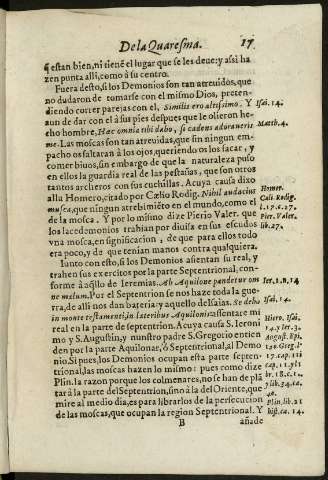 De la Quaresma. 17
q̃ estan bien, ni tienē el lugar que se les deue: y assi ha
zen punta alli, como à su centro.
Fuera desto, si los Demonios son tan atreuidos, que
no dudaron de tomarse con el mismo Dios, preten-
diendo correr parejas con el, Similis ero altissimo. Y
aun de dar con el à sus pies despues que le olieron he-
cho hombre, Hæc omnia tibi dabo, si cadens adoraueris
me. Las moscas son tan atreuidas, que sin ningun em-
pacho os saltaran à los ojos, queriendo os los sacar, y
comer biuos, sin embargo de que la naturaleza puso
en ellos la guardia real de las pestañas, que son otros
tantos archeros con sus cuchillas. Acuya causa dixo
alla Homero, citado por Cælio Rodig. Nihil audacius
musca, que ningun atrebimiēto en el mundo, como el
de la mosca. Y por lo mismo dize Pierio Valer. que
los lacedemonios trahian por diuisa en sus escudos
vna mosca, en significacion, de que para ellos todo
era poco, y de que tenian manos contra qualquiera.
Iunto con esto, si los Demonios asientan su real, y
trahen sus exercitos por la parte Septentrional, con-
forme à aq̃llo de Ieremias. Ab Aquilone pandetur om
ne malum. Por el Septentrion se nos haze toda la gue-
rra, de alli nos dan bateria: y aquello del Isaias. Sedebo
in monte testamenti, in lateribus Aquilonis: assentare mi
real en la parte de septentrion. Acuya causa S. Ieroni
mo y S. Augustin, y nuestro padre S. Gregorio entien
den por la parte Aquilonar, ò Septentrional, al Demo
nio. Si pues, los Demonios ocupan esta parte septen-
trional, las moscas hazen lo mismo: pues como dize
Plin. la razon porque los colmenares, no se han de plã
tar à la parte del Septentrion, sino à la del Oriente, que
mire al medio dia, es para librarlos de la persecucion
de las moscas, que ocupan la region Septentrional. Y
B añade
Isai. 14.
Matth. 4.
Homer.
Cæli. Rodig.
Pier. Valer.
lib. 27.
Isai. 14.
Hiero. Isai.
14. y Ier. 3.
August. Epi.
Plin. lib. 21
hist. ca. 14.